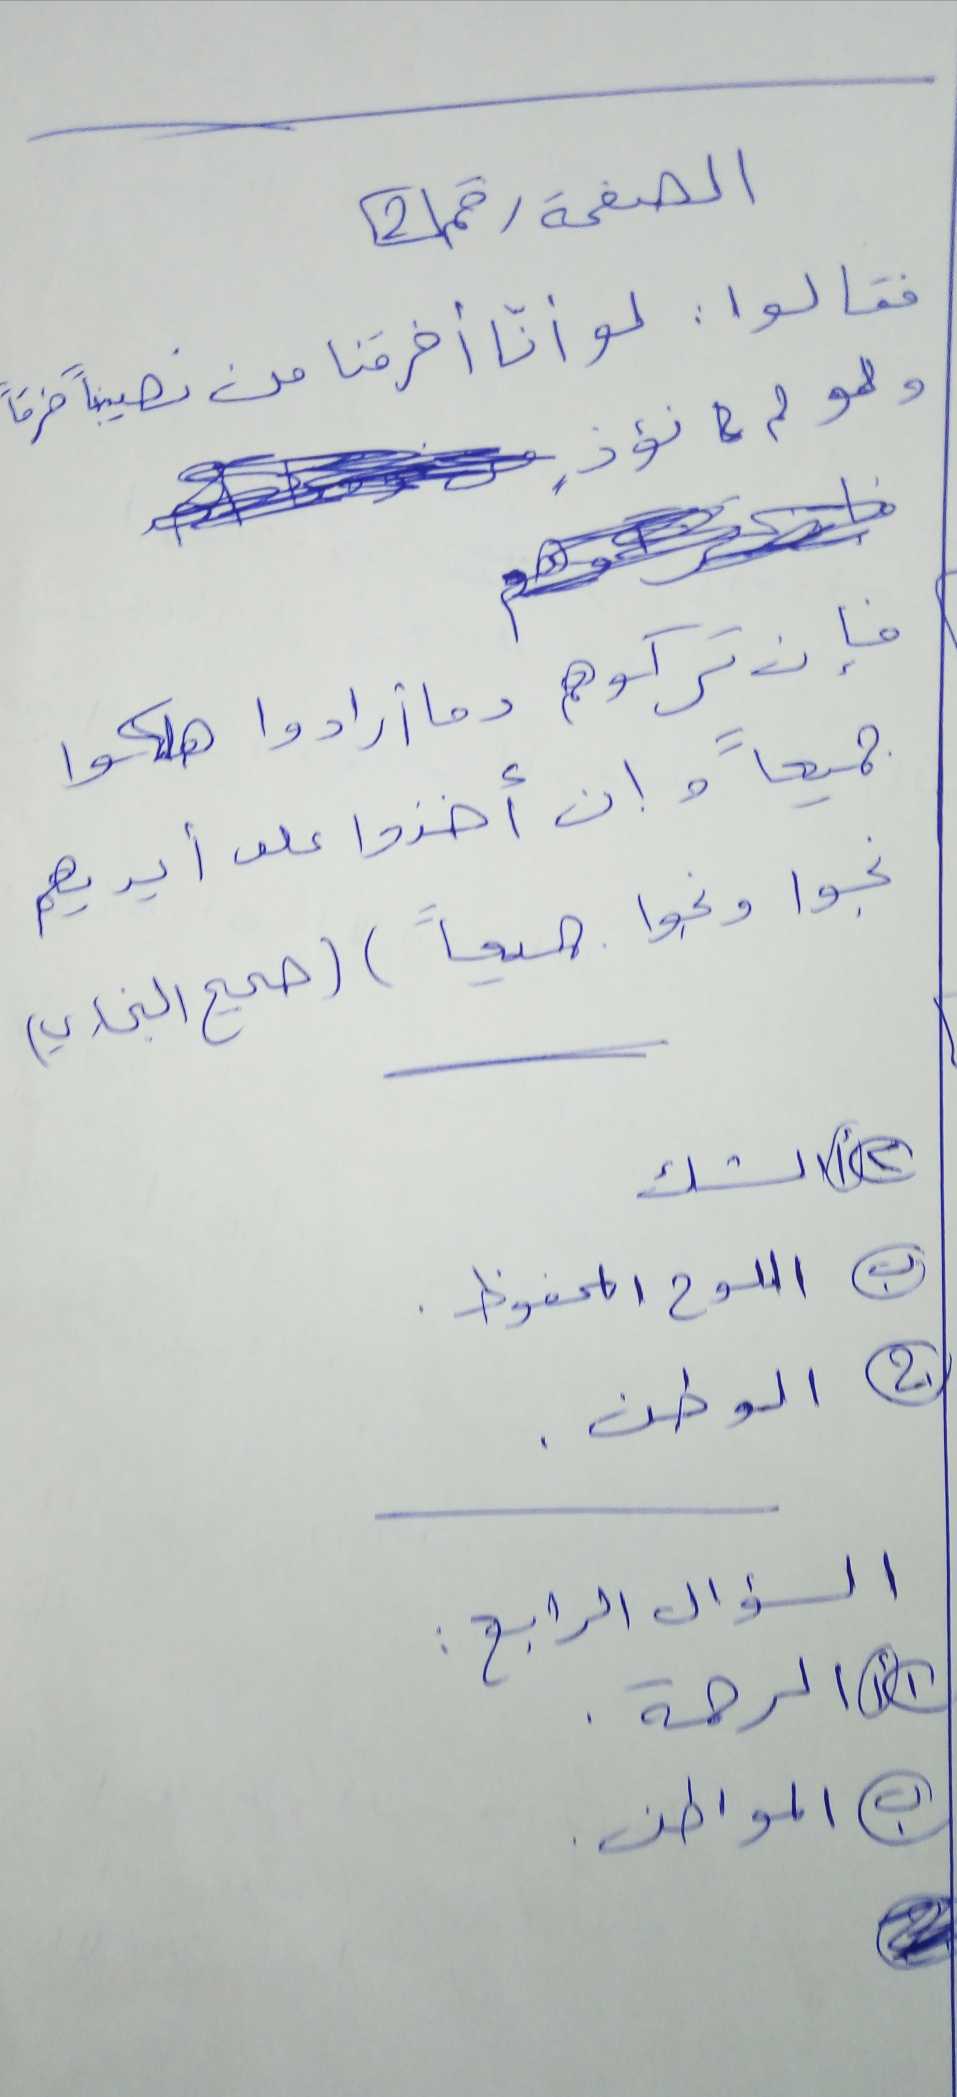 الصفحة رقم 2
فقالوا: لو أنّا أخرقنا من نصيبنا خرقاً
ولو لم نؤذِ
فإن تركوهم وما أرادوا هلكوا
جميعاً و إن أخذوا على أيديهم
نجوا ونجوا جميعاً) (صحيح البخاري)
٢ أ الشك
ب اللوح المحفوظ.
ج الوطن.
السؤال الرابع:
١ أ الرحمة.
ب المواطن.